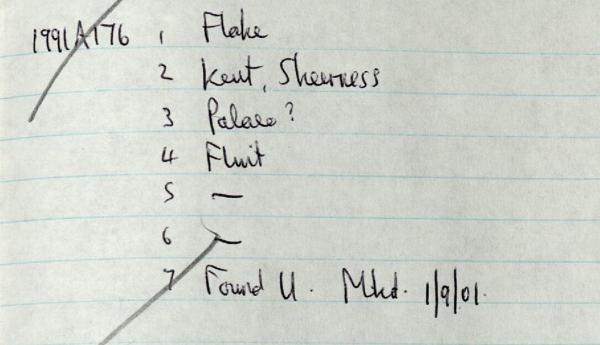 1991A176 1 Flake
2 Kent, Sheerness
3 Palaeo?
4 Flint
5 —
6 —
7 Found U. Mkd. 1/9/01.